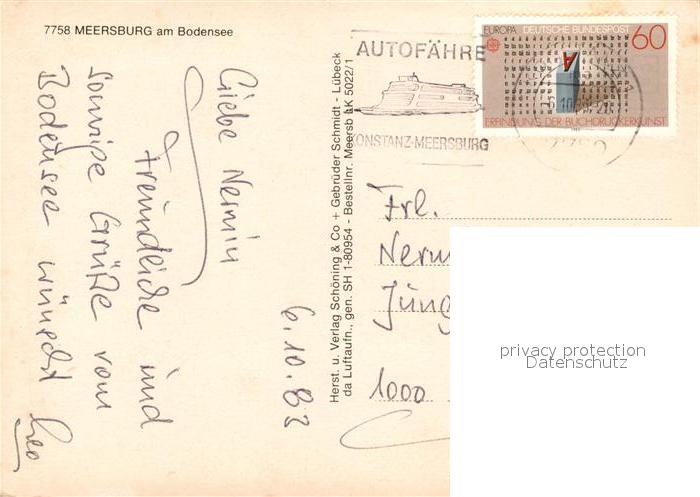 7758 MEERSBURG am Bodensee
Liebe Nermin
Freundliche und
sonnige Grüße vom
Bodensee wünscht
Leo
6.10.83
Herst. u. Verlag Schöning & Co + Gebrüder Schmidt - Lübeck
da Luftaufn., gen. SH 1-80954 - Bestellnr. Meersb LK 5022/1
AUTOFÄHRE
KONSTANZ-MEERSBURG
EUROPA DEUTSCHE BUNDESPOST 60
A
ERFINDUNG DER BUCHDRUCKERKUNST
Frl.
1000
privacy protection
Datenschutz